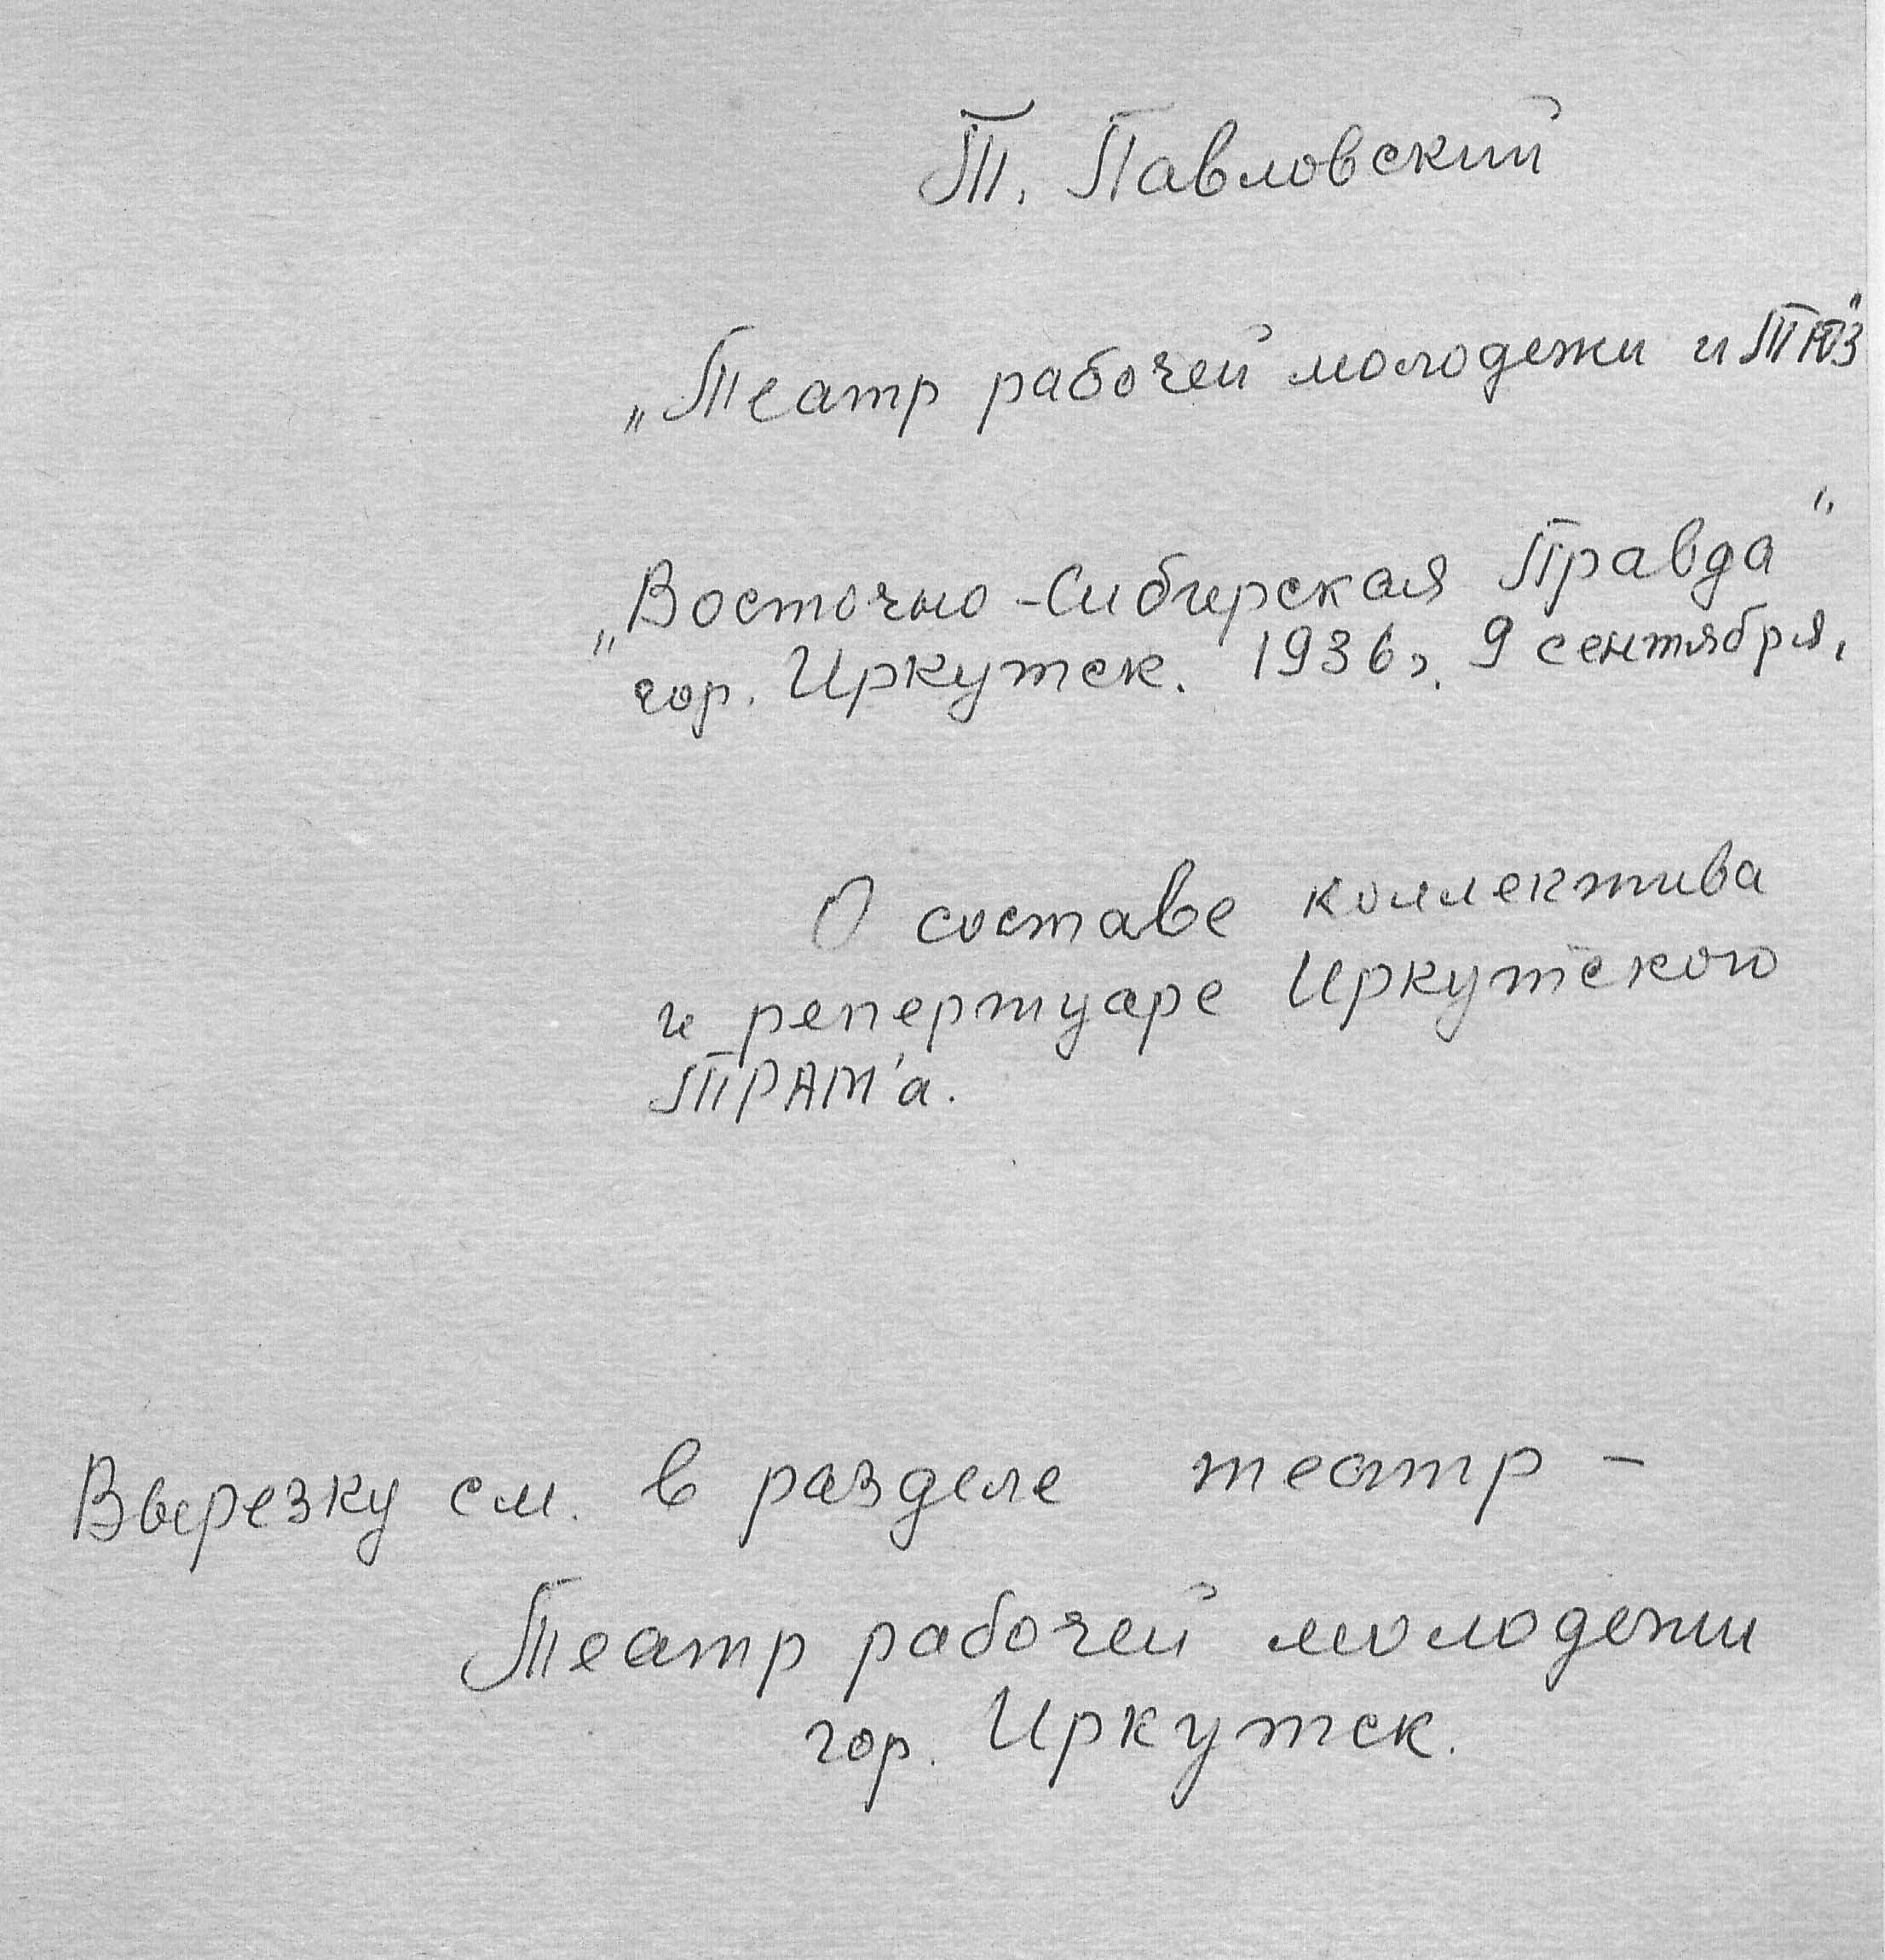 Т. Павловский
„Театр рабочей молодежи и ТЮЗ"
„Восточно-Сибирская Правда"
гор. Иркутск. 1936 г. 9 сентября.
О составе коллектива
и репертуаре Иркутского
ТРАМ'а.
Вырезку см. в разделе театр –
Театр рабочей молодежи
гор. Иркутск.